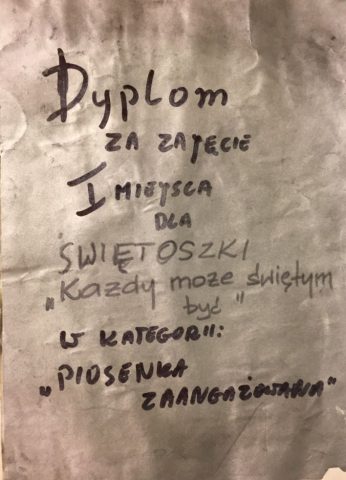 Dyplom
ZA ZAJĘCIE
I MIEJSCA
DLA
ŚWIĘTOSZKI
„Każdy może świętym
być"
W KATEGORII:
„PIOSENKA
ZAANGAŻOWANA"